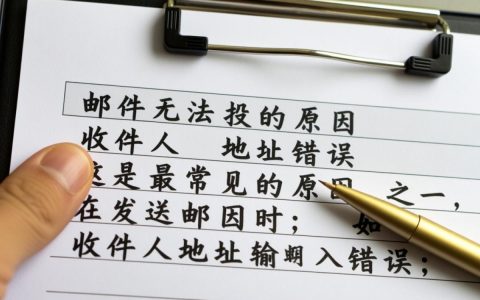 邮件无法投的原因
收件人 地址错误
这是最常见的原因 之一，
在发送邮因时； 如
收件人地址输入错误；